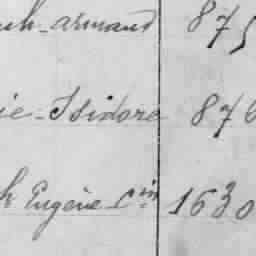 armand 875
Isidore 876
Eugène C^in 1630